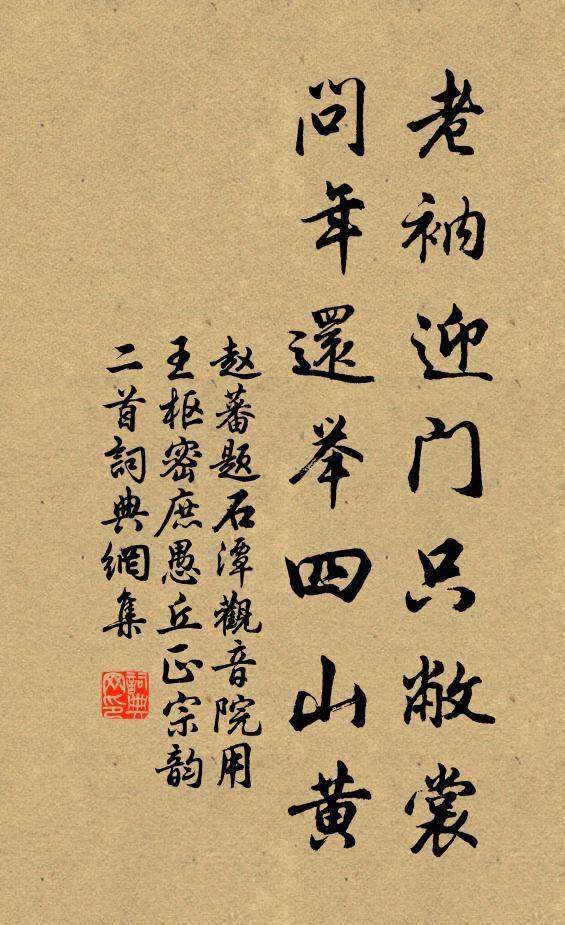 老衲迎门只敝裳
問年還举四山黄
赵蕃题石潭觀音院用
王枢密庶愚丘正宗韵
二首詞典網集
詞典网印